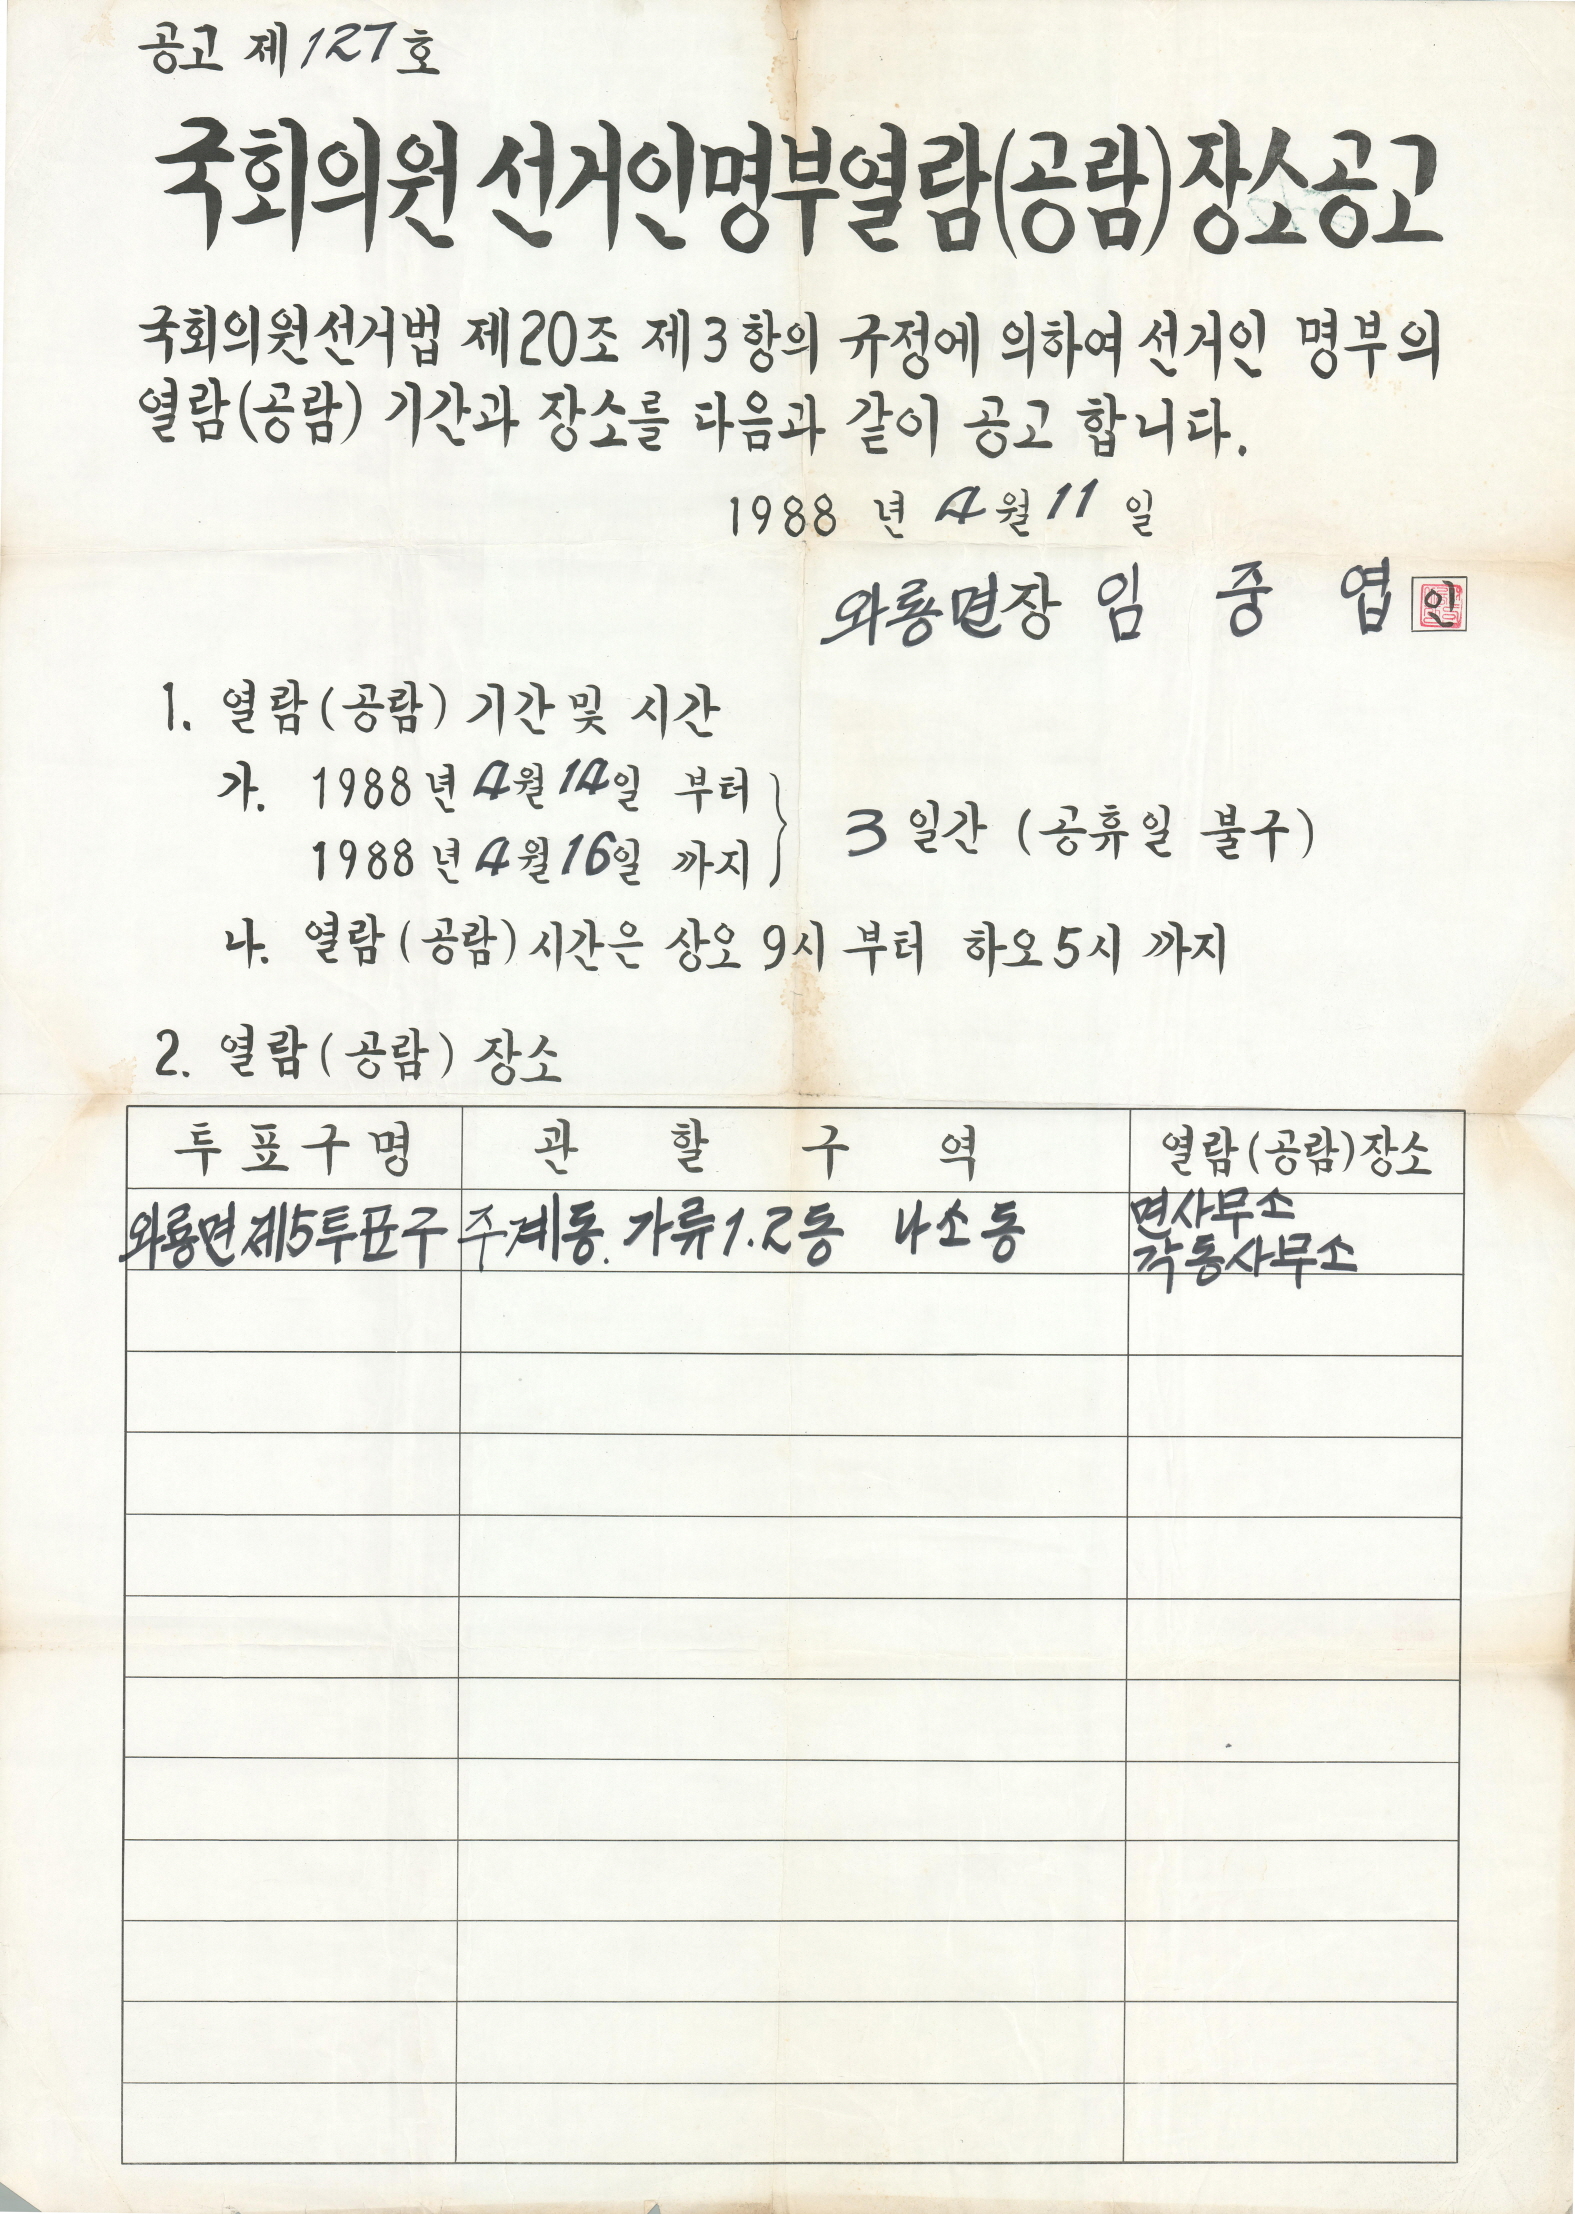 공고 제127호
국회의원 선거인명부열람(공람)장소공고
국회의원선거법 제20조 제3항의 규정에 의하여 선거인 명부의
열람(공람) 기간과 장소를 다음과 같이 공고 합니다.
1988 년 4월 11 일
와룡면장 임 중 엽 인
1. 열람(공람) 기간및 시간
가. 1988년 4월 14일 부터
1988년 4월 16일 까지
3 일간 (공휴일 불구)
나. 열람(공람)시간은 상오 9시 부터 하오 5시 까지
2. 열람(공람) 장소
투표구명 관할구역 열람(공람)장소
와룡면 제5투표구 주계동. 가류1.2동 나소동 면사무소
각동사무소